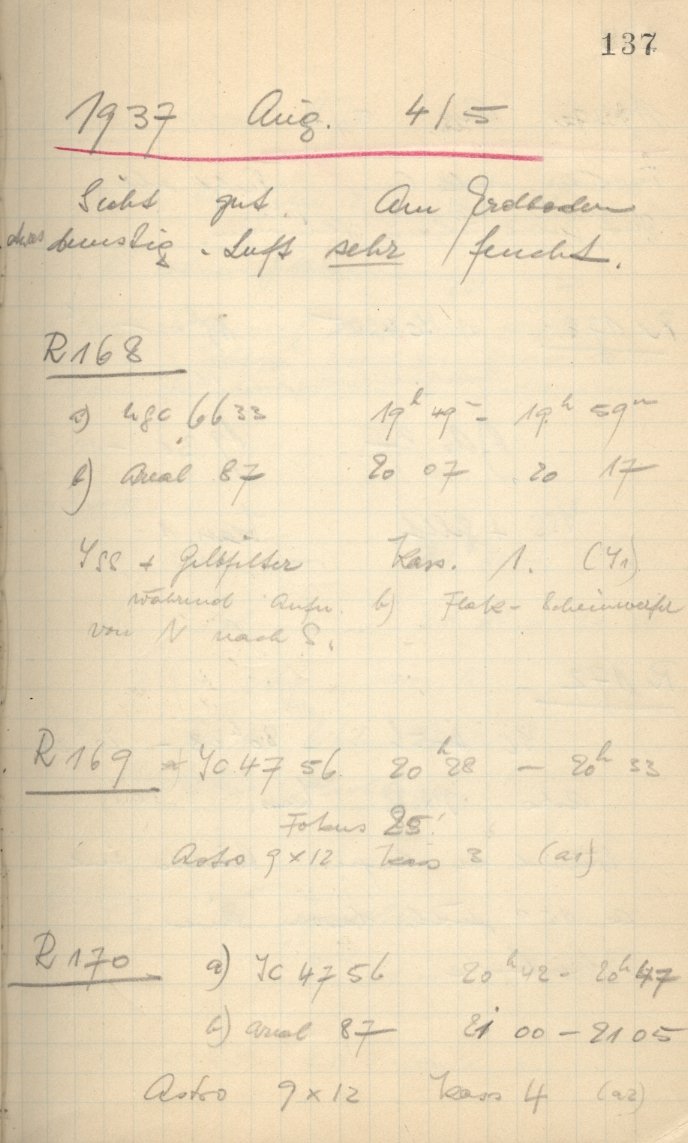 137
1937 Aug. 4/5
Sicht gut. Am Erdboden
etwas dunstig. Luft sehr feucht.
R168
a) NGC 6633 19h 49m - 19h 59m
b) Areal 87 20 07 20 17
ISS + Gelbfilter Kass. 1. (Y1)
während Aufn. b) Flak-Scheinwerfer
von N nach S.
R169 IC 4756. 20h 28 - 20h 33
Fokus 25!
Astro 9x12 Kass 3 (a1)
R170 a) IC 4756 20h 42 - 20h 47
b) Areal 87 21 00 - 21 05
Astro 9x12 Kass 4 (a2)